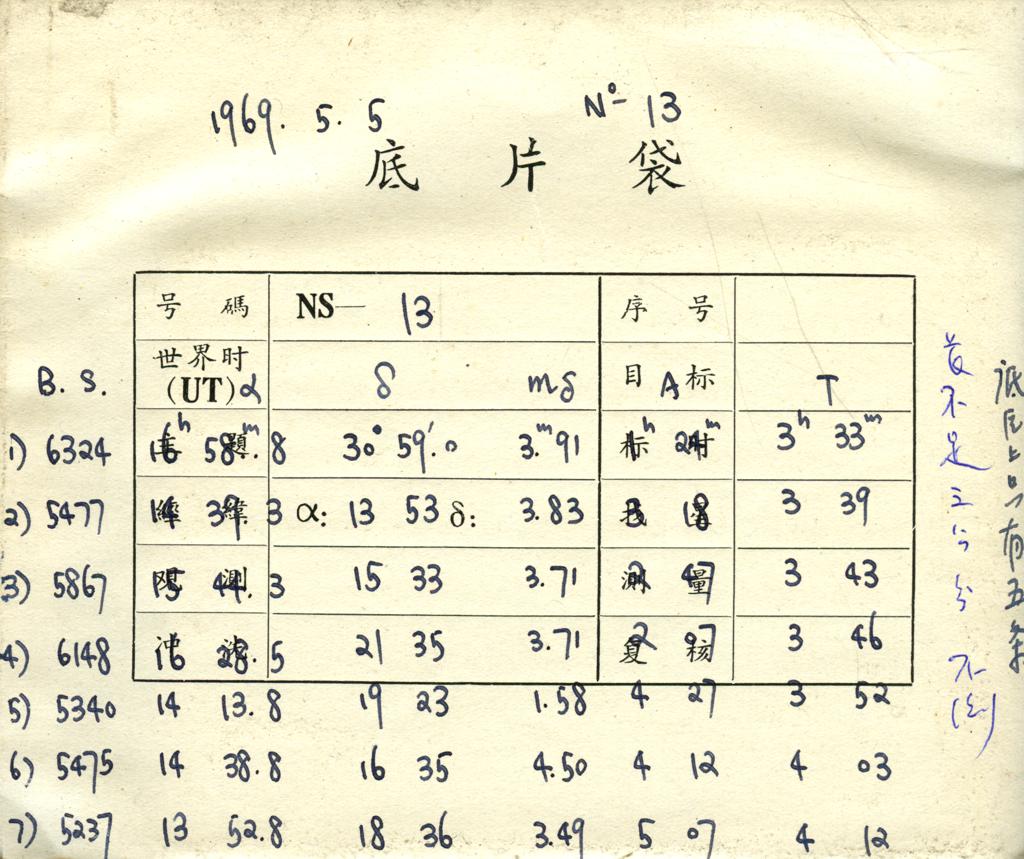 1969. 5. 5 Nº- 13
底 片 袋
号 碼 NS— 13 序 号
世界时
B. S. (UT) α δ mδ 目 A 标 T
1) 6324 16ʰ 58ᵐ.8 30° 59′.0 3.ᵐ91 标 1ʰ 24ᵐ 时 3ʰ 33ᵐ
2) 5477 14 39. 3 α: 13 53 δ: 3.83 3 18 3 39
3) 5867 15 44. 3 测 15 33 3.71 测 2 47 量 3 43
4) 6148 16 28. 5 21 35 3.71 复 2 07 核 3 46
5) 5340 14 13.8 19 23 1.58 4 27 3 52
6) 5475 14 38.8 16 35 4.50 4 12 4 03
7) 5237 13 52.8 18 36 3.49 5 07 4 12
底片上只有五条
不足三公分 不测